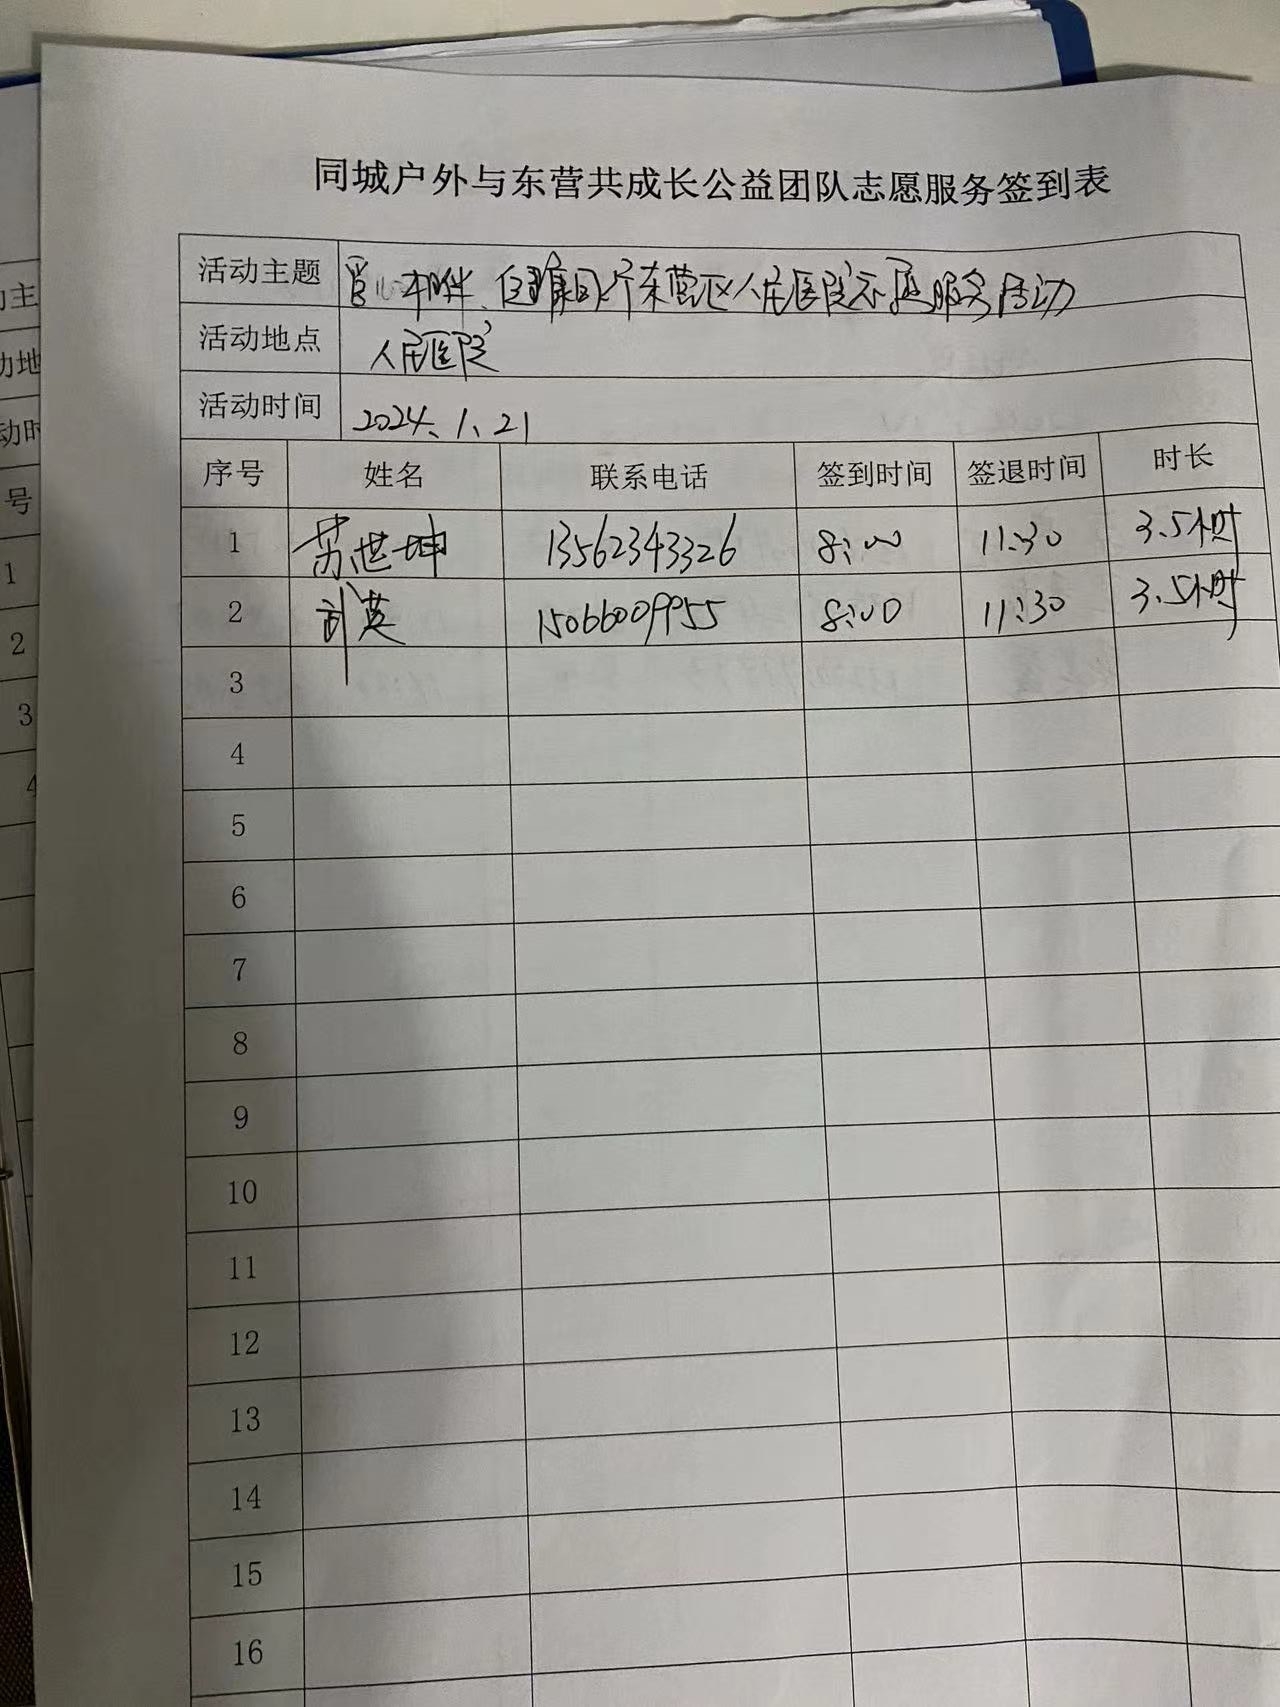 同城户外与东营共成长公益团队志愿服务签到表
活动主题 相伴、健康同行东营区人民医院志愿服务活动
活动地点 人民医院
活动时间 2024、1、21
序号 姓名 联系电话 签到时间 签退时间 时长
1 苏世坤 13562343326 8:00 11:30 3.5小时
2 英 15066009955 8:00 11:30 3.5小时
3
4
5
6
7
8
9
10
11
12
13
14
15
16
主
动地
动时
号
1
2
3
4